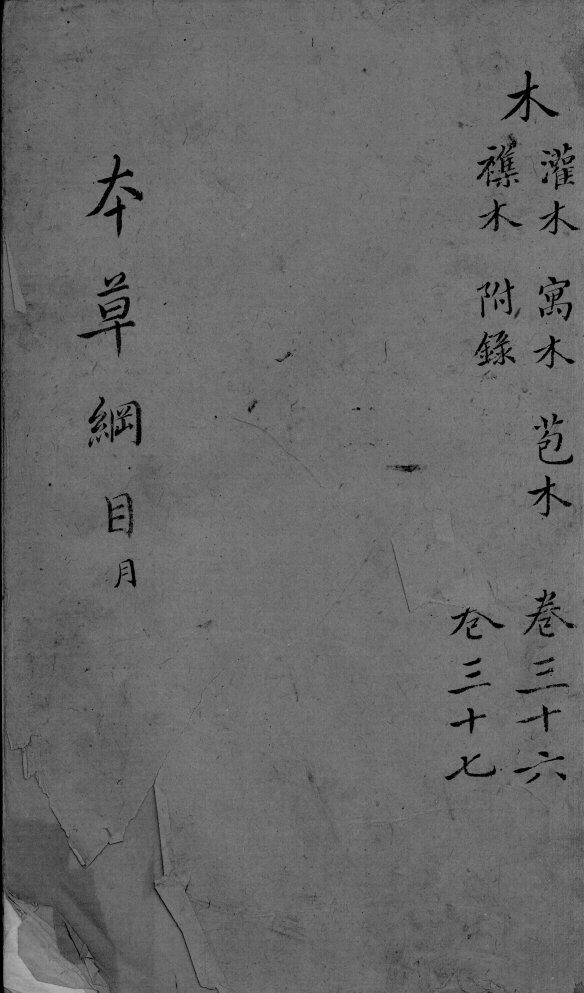 木
灌木 寓木 苞木 卷三十六
襍木 附錄 卷三十七
本草綱目月